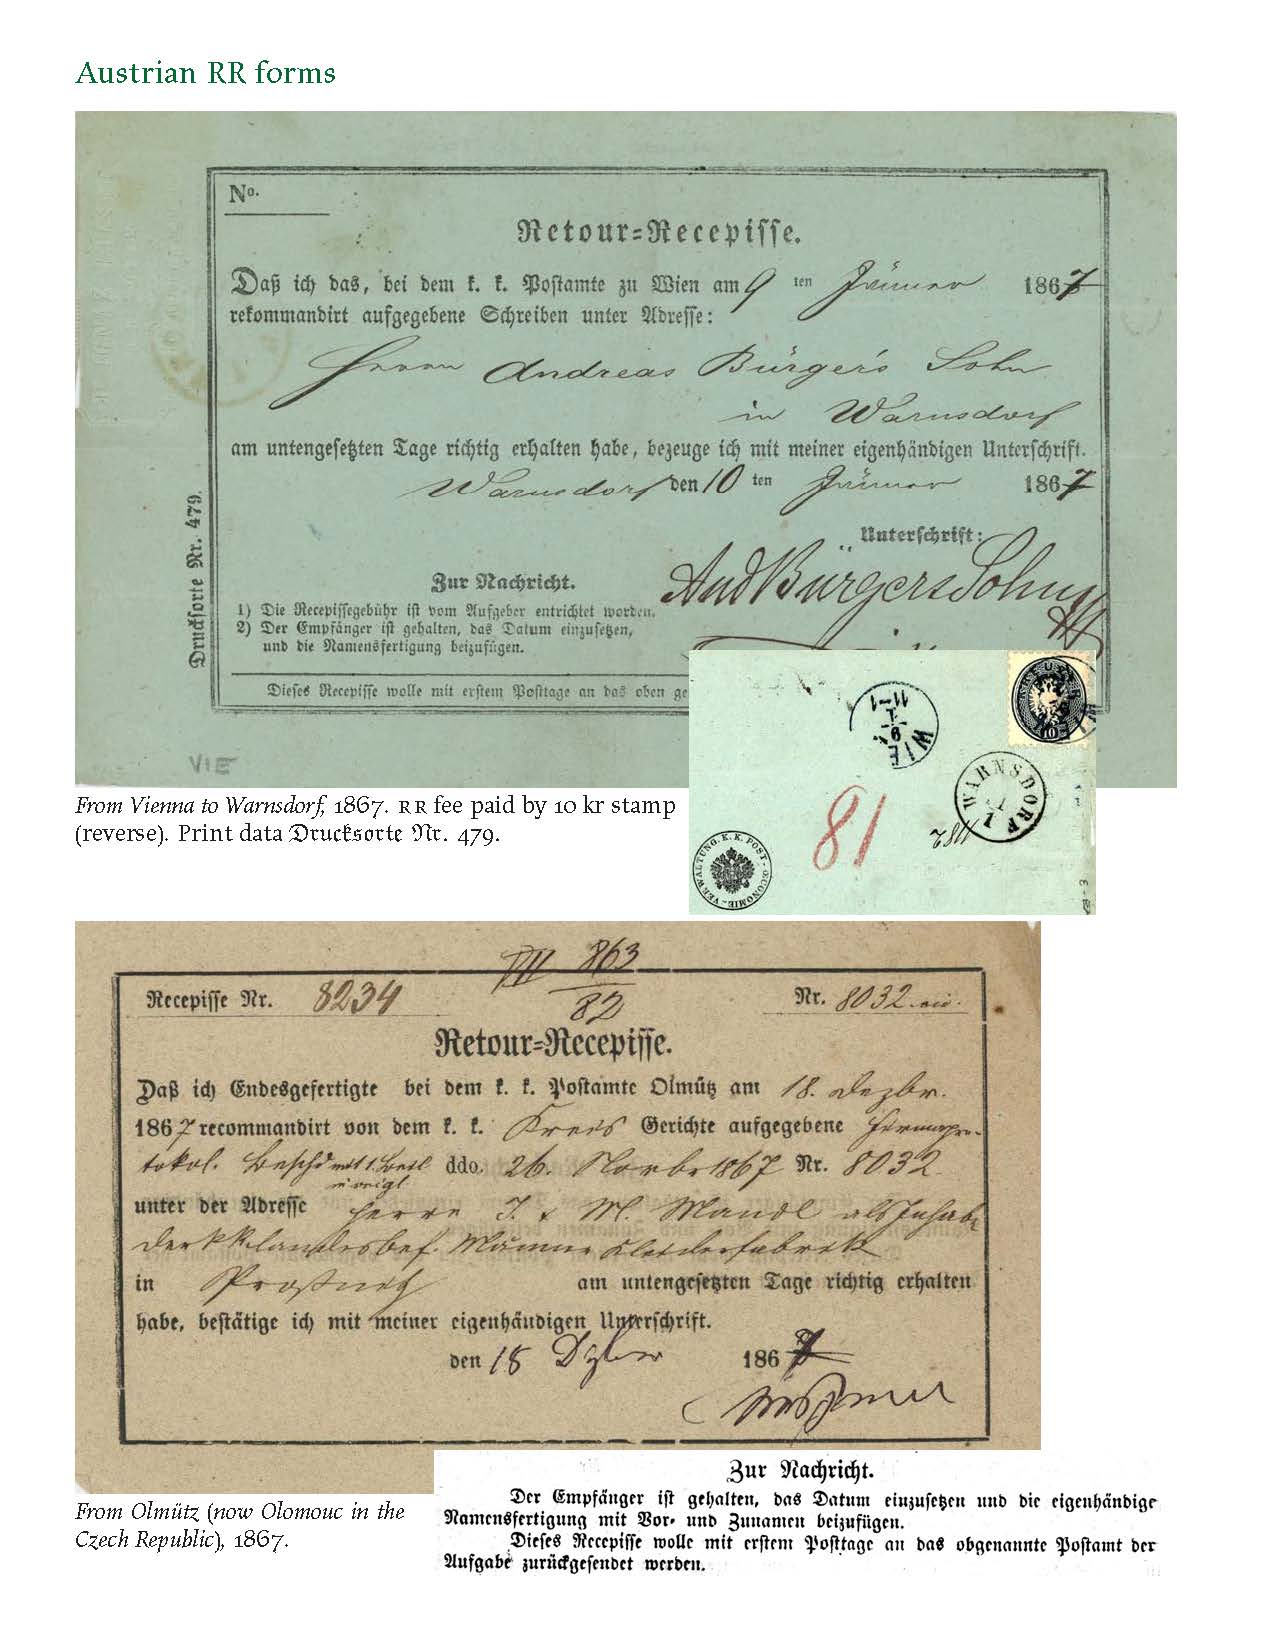 Austrian RR forms
No.
Retour=Recepisse.
Daß ich das, bei dem k. k. Postamte zu Wien am 9 ten Jänner 1867
rekommandirt aufgegebene Schreiben unter Adresse:
Herrn Andreas Bürger's Sohn
in Warnsdorf
am untengesetzten Tage richtig erhalten habe, bezeuge ich mit meiner eigenhändigen Unterschrift.
Warnsdorf den 10 ten Jänner 1867
Unterschrift:
And Bürgers Sohn
Zur Nachricht.
1) Die Recepissegebühr ist vom Aufgeber entrichtet worden.
2) Der Empfänger ist gehalten, das Datum einzusetzen,
und die Namensfertigung beizufügen.
Dieses Recepisse wolle mit erstem Posttage an das oben ge
Drucksorte Nr. 479.
VIE
WIE
9.
1
11-1
10
WARNSDORF
1
81
VERWALTUNG. K. K. POST-OECONOMIE-
From Vienna to Warnsdorf, 1867. RR fee paid by 10 kr stamp
(reverse). Print data Drucksorte Nr. 479.
VII 863
82
Recepisse Nr. 8234
Nr. 8032
Retour=Recepisse.
Daß ich Endesgefertigte bei dem k. k. Postamte Olmütz am 18. Dezbr.
1867 recommandirt von dem k. k. Kreis Gerichte aufgegebene Firmapro-
tokol. ddo. 26. Novbr 1867 Nr. 8032
unter der Adresse Herrn J. & M. Mandl als Inhab
der Männer Kleiderfabrik
in Proßnitz am untengesetzten Tage richtig erhalten
habe, bestätige ich mit meiner eigenhändigen Unterschrift.
den 18 1867
From Olmütz (now Olomouc in the
Czech Republic), 1867.
Zur Nachricht.
Der Empfänger ist gehalten, das Datum einzusetzen und die eigenhändige
Namensfertigung mit Vor- und Zunamen beizufügen.
Dieses Recepisse wolle mit erstem Posttage an das obgenannte Postamt der
Aufgabe zurückgesendet werden.